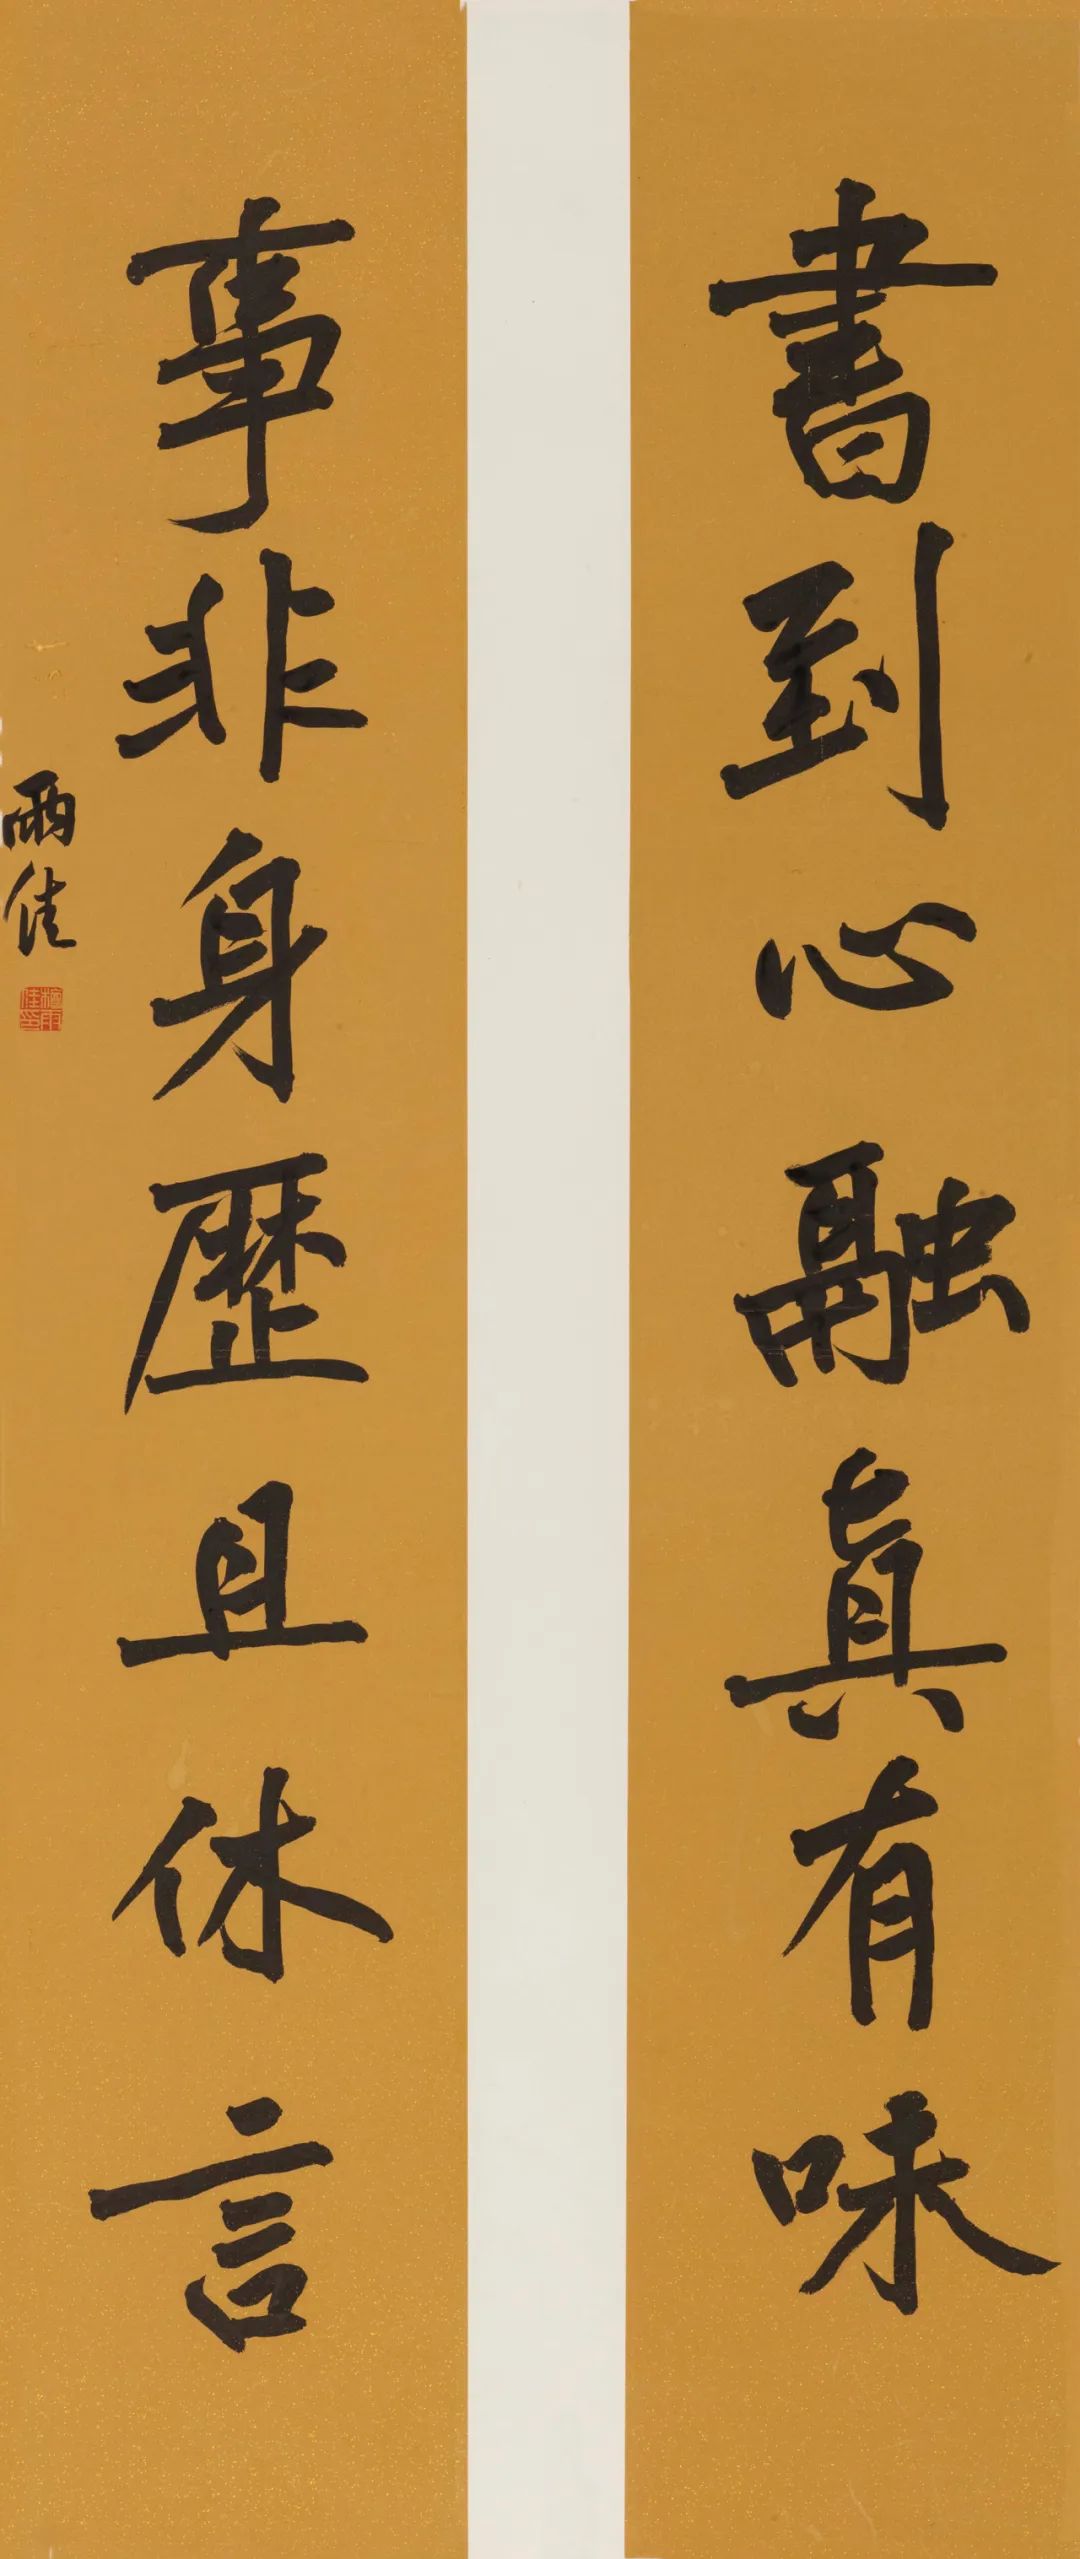 書到心融真有味
事非身歷且休言
雨佳